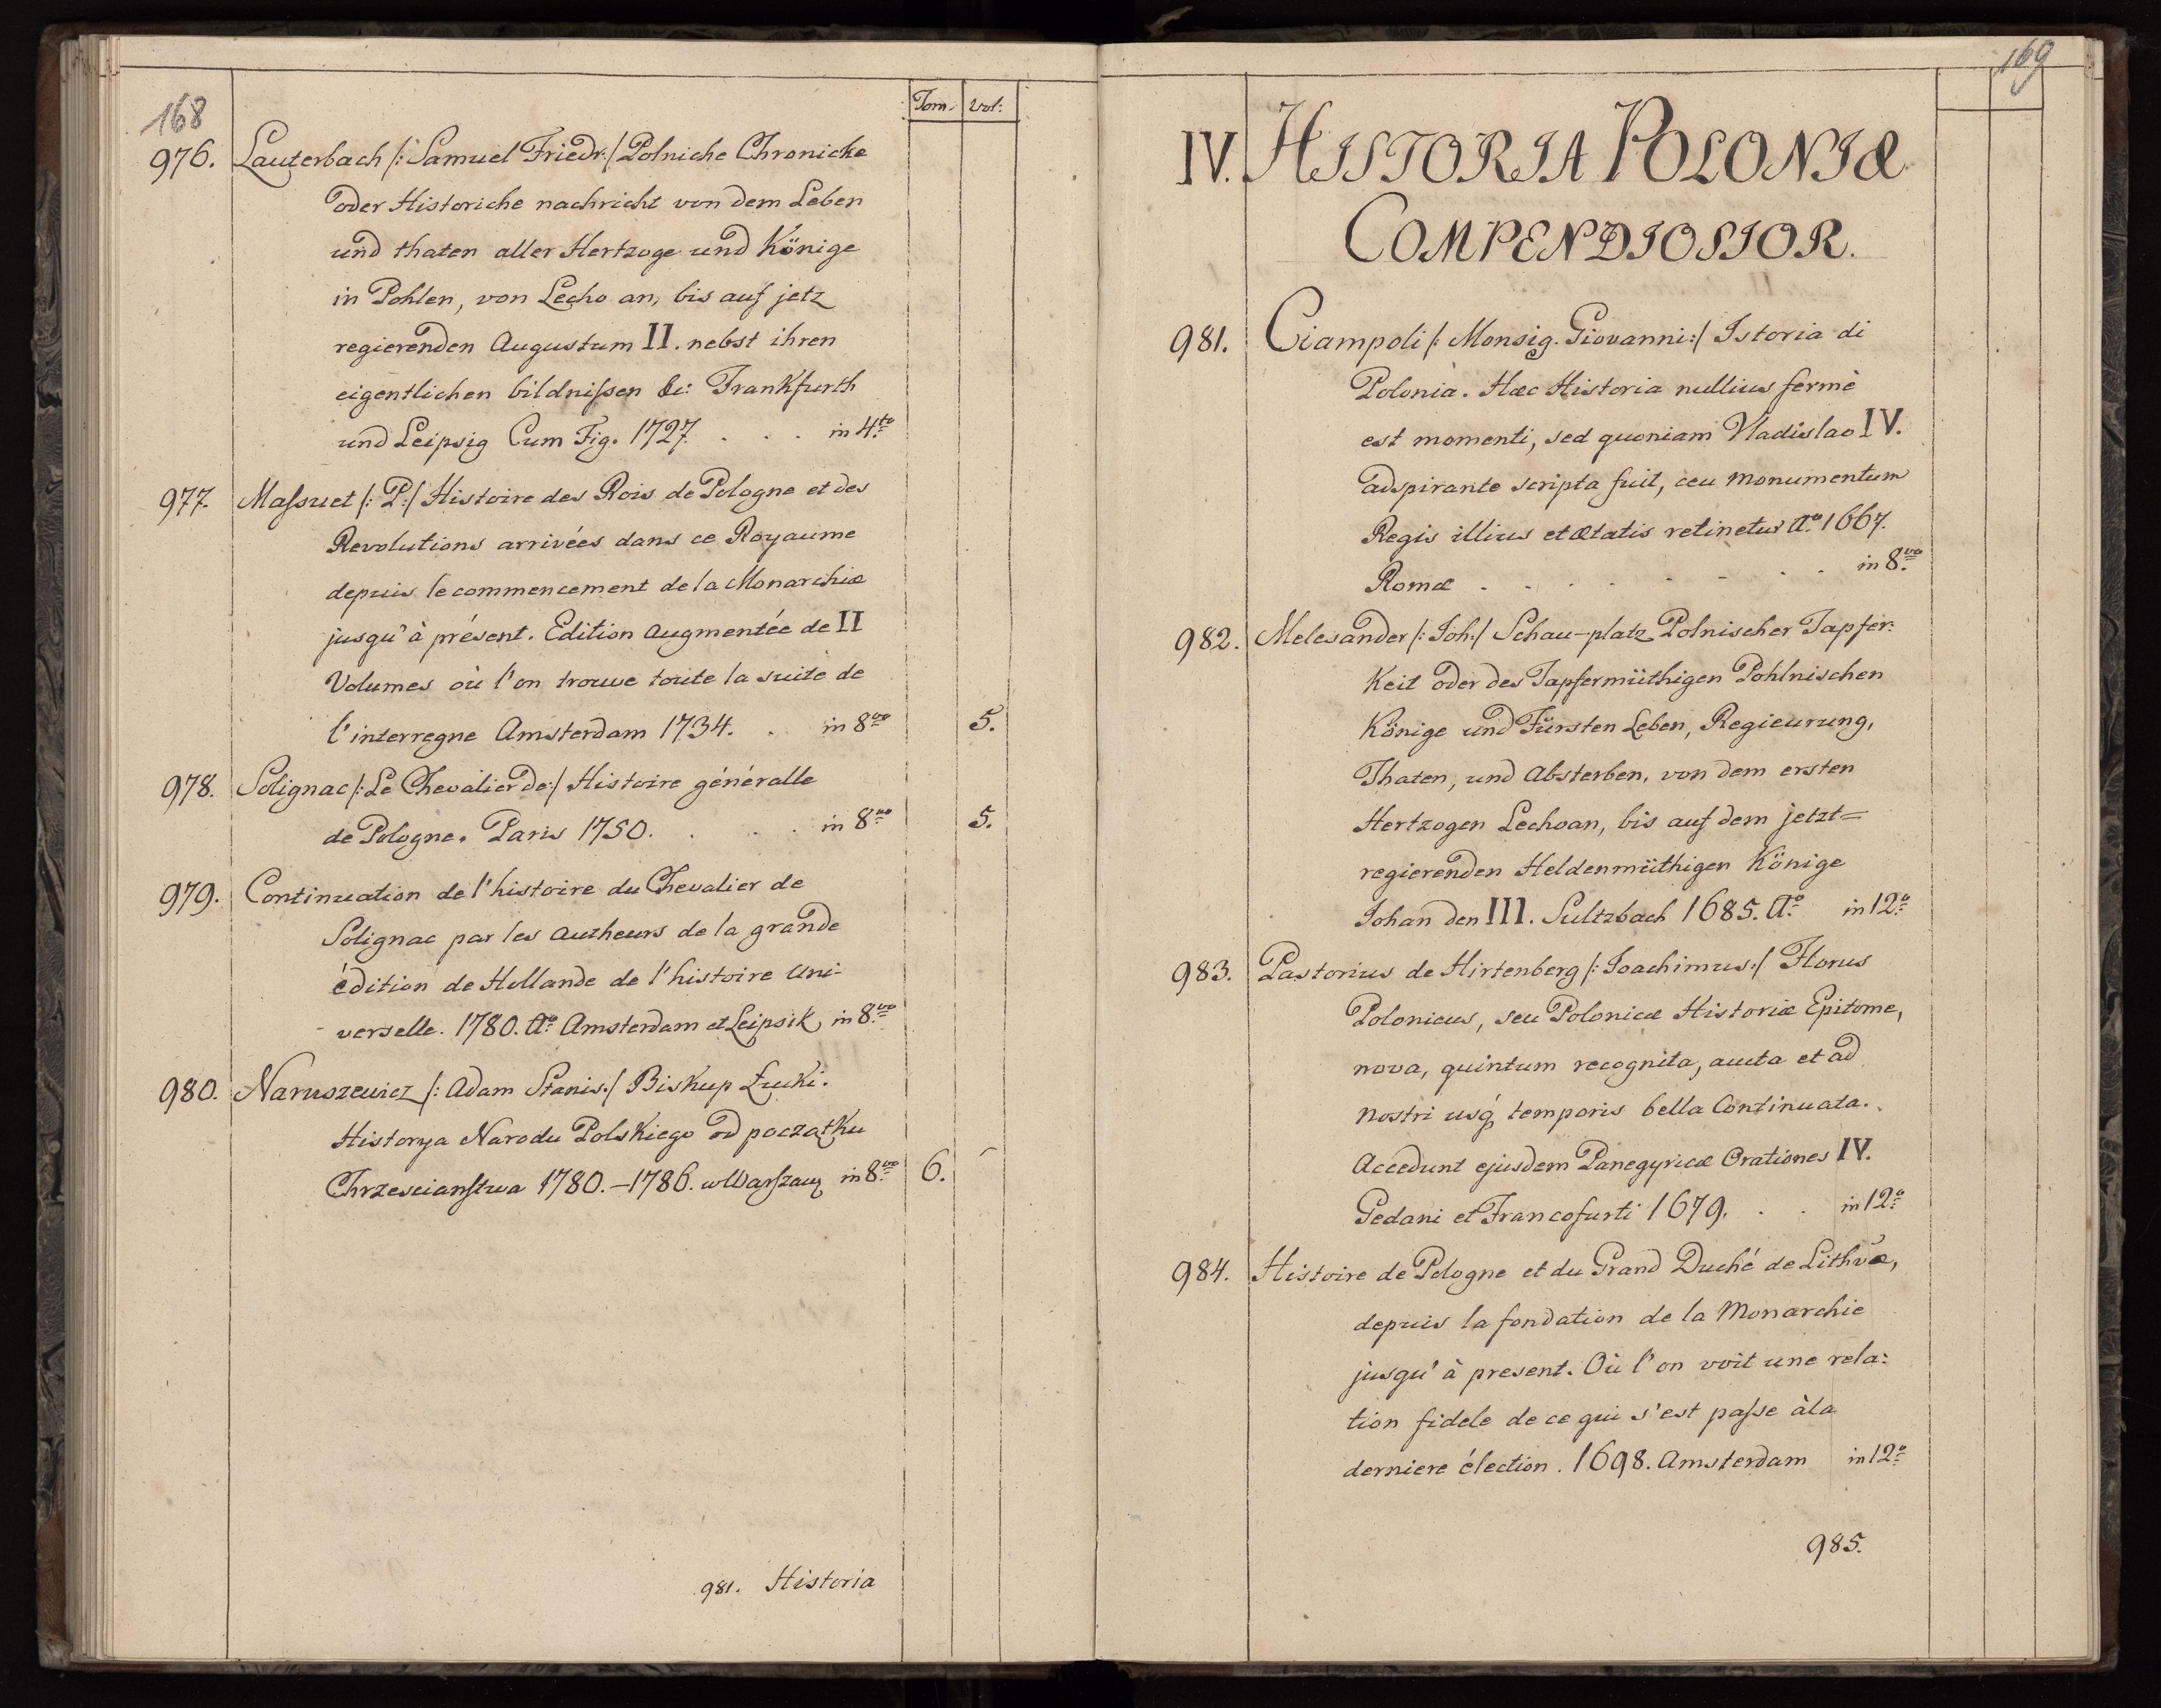 168
Tom. Vol:
976. Lauterbach /: Samuel Friedr:/ Polniche Chronicke
oder Historiche nachricht von dem Leben
und thaten aller Hertzoge und Könige
in Pohlen, von Lecho an, bis auf jetz
regierenden Augustum II. nebst ihren
eigentlichen bildnißen &c: Frankfurth
und Leipsig Cum Fig. 1727. . . . in 4to
977. Maſsuet /: P:/ Histoire des Rois de Pologne et des
Revolutions arrivées dans ce Royaume
depuis le commencement de la Monarchie
jusqu'à présent. Edition augmentée de II
Volumes où l'on trouve toute la suite de
l'interregne Amsterdam 1734. . in 8vo 5.
978. Solignac /: Le Chevalier de:/ Histoire généralle
de Pologne. Paris 1750. . . . in 8vo 5.
979. Continuation de l'histoire du Chevalier de
Solignac par les autheurs de la grande
édition de Hollande de l'histoire uni-
verselle. 1780. Ao Amsterdam et Leipsik in 8vo
980. Naruszewicz /: Adam Stanis:/ Biskup Łucki.
Historya Narodu Polskiego od początku
Chrzescianſtwa 1780.–1786. w Warſzawie in 8vo 6. –
981. Historia
169
IV. HISTORIA POLONIÆ
COMPENDIOSIOR.
981. Ciampoli /: Monsig. Giovanni:/ Istoria di
Polonia. Hæc Historia nullius fermè
est momenti, sed quoniam Vladislao IV.
adspirante scripta fuit, ceu monumentum
Regis illius et ætatis retinetur Ao 1667.
Romæ . . . . . . . in 8vo
982. Melesander /: Joh:/ Schau-platz Polnischer Tapfer:
Keit oder des Tapfermüthigen Pohlnischen
Könige und Fürsten Leben, Regieurung,
Thaten, und Absterben, von dem ersten
Hertzogen Lechoan, bis auf dem jetzt=
regierenden Heldenmüthigen Könige
Johan den III. Sultzbach 1685. Ao in 12o
983. Pastorius de Hirtenberg /: Joachimus:/ Florus
Polonicus, seu Polonicæ Historiæ Epitome,
nova, quintum recognita, aucta et ad
nostri usq́ temporis bella Continuata.
Accedunt ejusdem Panegyricæ Orationes IV.
Gedani et Francofurti 1679. . . in 12o
984. Histoire de Pologne et du Grand Duché de Lithvæ,
depuis la fondation de la Monarchie
jusqu'à present. Où l'on voit une rela:
tion fidele de ce qui s'est paſse à la
derniere élection. 1698. Amsterdam in 12o
985.